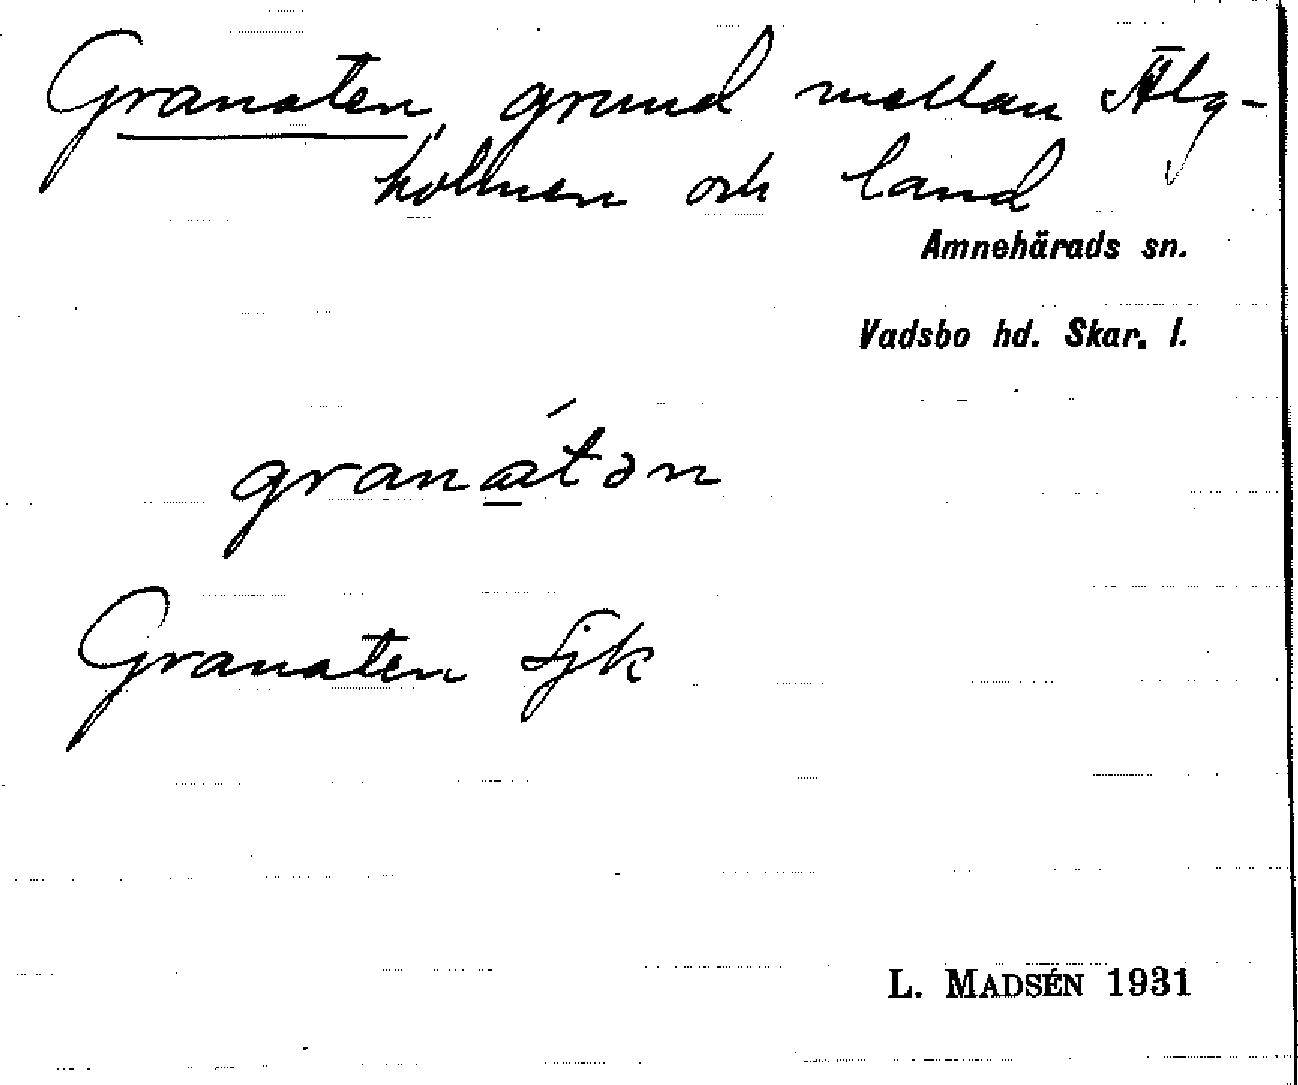 Granaten, grund mellan Älg-
holmen och land
Amnehärads sn.
Vadsbo hd. Skar. l.
granátən
Granaten Sjk
L. MADSÉN 1931